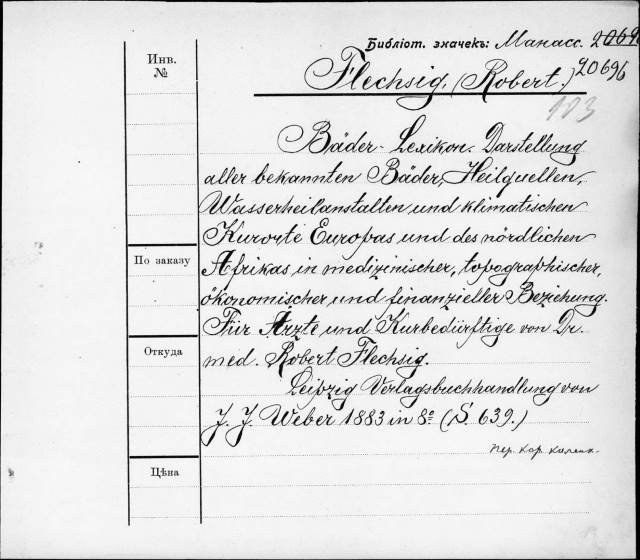 Библiот. значекъ: Манасс. 20696
Инв.
№
Flechsig, (Robert.) 20696
103
Bäder-Lexikon. Darstellung
aller bekannten Bäder, Heilquellen,
Wasserheilanstalten und klimatischen
Kurorte Europas und des nördlichen
По заказу
Afrikas in medizinischer, topographischer,
ökonomischer und finanzieller Beziehung.
Für Ärzte und Kurbedürftige von Dr.
Откуда
med. Robert Flechsig.
Leipzig Verlagsbuchhandlung von
J. J. Weber 1883 in 8º (S. 639.)
Пер. кор.
Цѣна